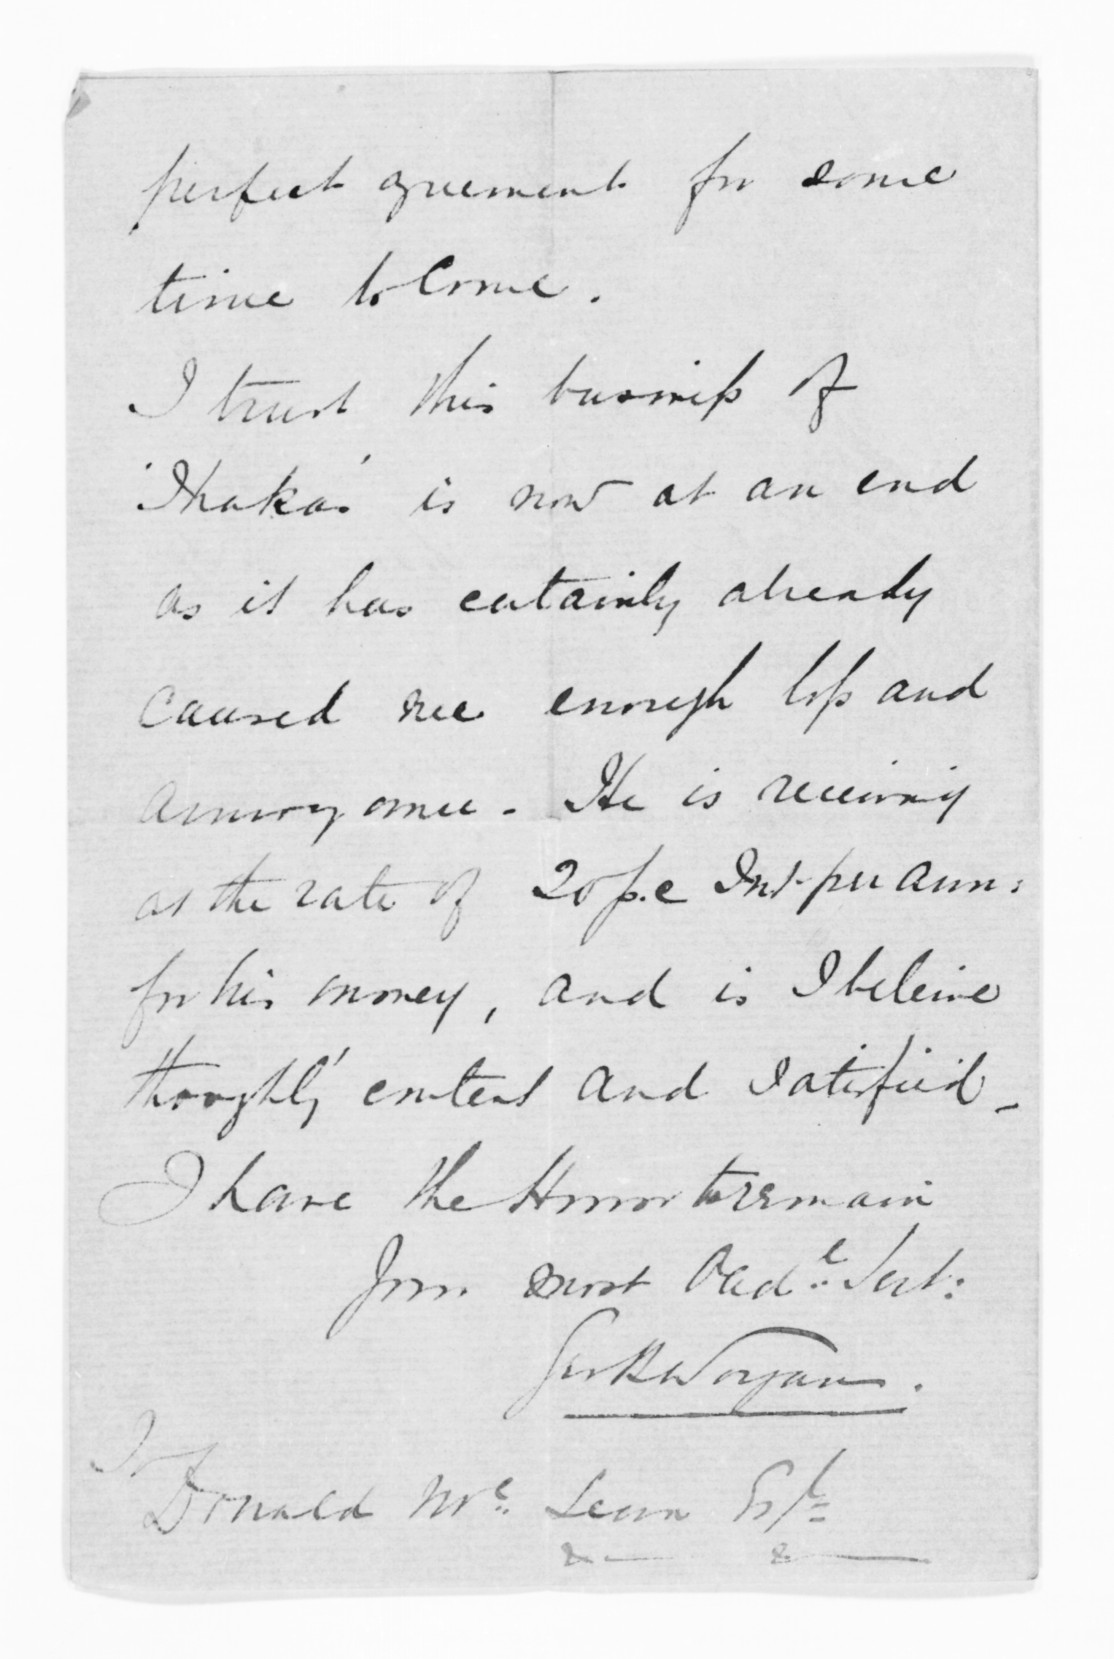 perfect agreement for some
time to Come.
I trust this business of
'Ihaka' is now at an end
as it has certainly already
Caused me enough loss and
annoyance. He is receiving
at the rate of 20 p.c Int per Ann:
for his money, and is I beleive
thoroghly content and Satisfied_
I have the Honor to remain
Your most Obed.t Servt:
Geo B Worgan.
To
Donald Mc. Lean Esq
& &